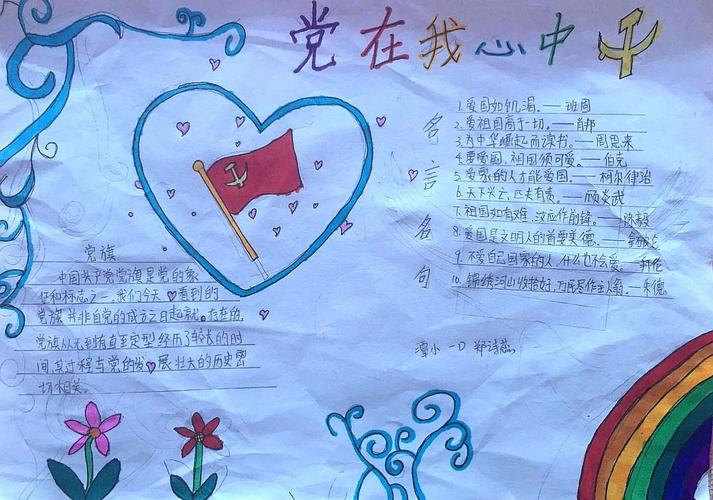 党在我心中
名言名句
1.爱国如饥渴。——班固
2.爱祖国高于一切。——肖邦
3.为中华崛起而读书。——周恩来
4.要爱国,祖国须可爱。——伯克
5.爱家的人才能爱国。——柯尔律治
6.天下兴亡,匹夫有责。——顾炎武
7.祖国如有难,汝应作前锋。——陈毅
8.爱国是文明人的首要美德。——拿破仑
9.不爱自己国家的人,什么也不会爱。——拜伦
10.锦绣河山收拾好,万民尽作主人翁。——朱德
潭小一D 郑诗蕊
党旗
中国共产党党旗是党的象
征和标志之一,我们今天看到的
党旗并非自党的成立之日起就存在的,
党旗从无到有直至定型经历了较长的时
间,其过程与党的发展壮大的历史密
切相关。